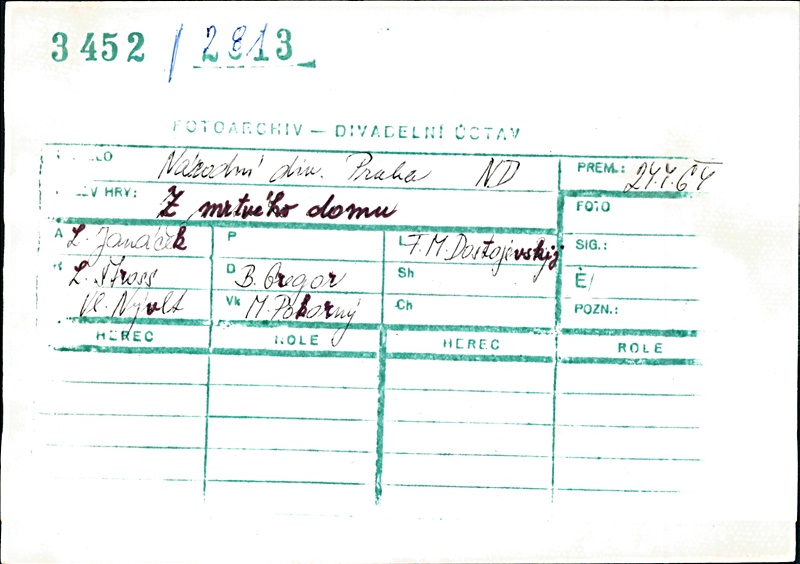 3452 / 2813
FOTOARCHIV — DIVADELNÍ ÚSTAV
Národní div. Praha ND
PREM.: 24.V.64
HRY: Z mrtvého domu
FOTO
A L. Janáček
P
L F. M. Dostojevskij
SIG.:
R L. Štros
D B. Gregor
Sh
Č/
Vl. Nývlt
Vk M. Pokorný
Ch
POZN.:
HEREC ROLE HEREC ROLE